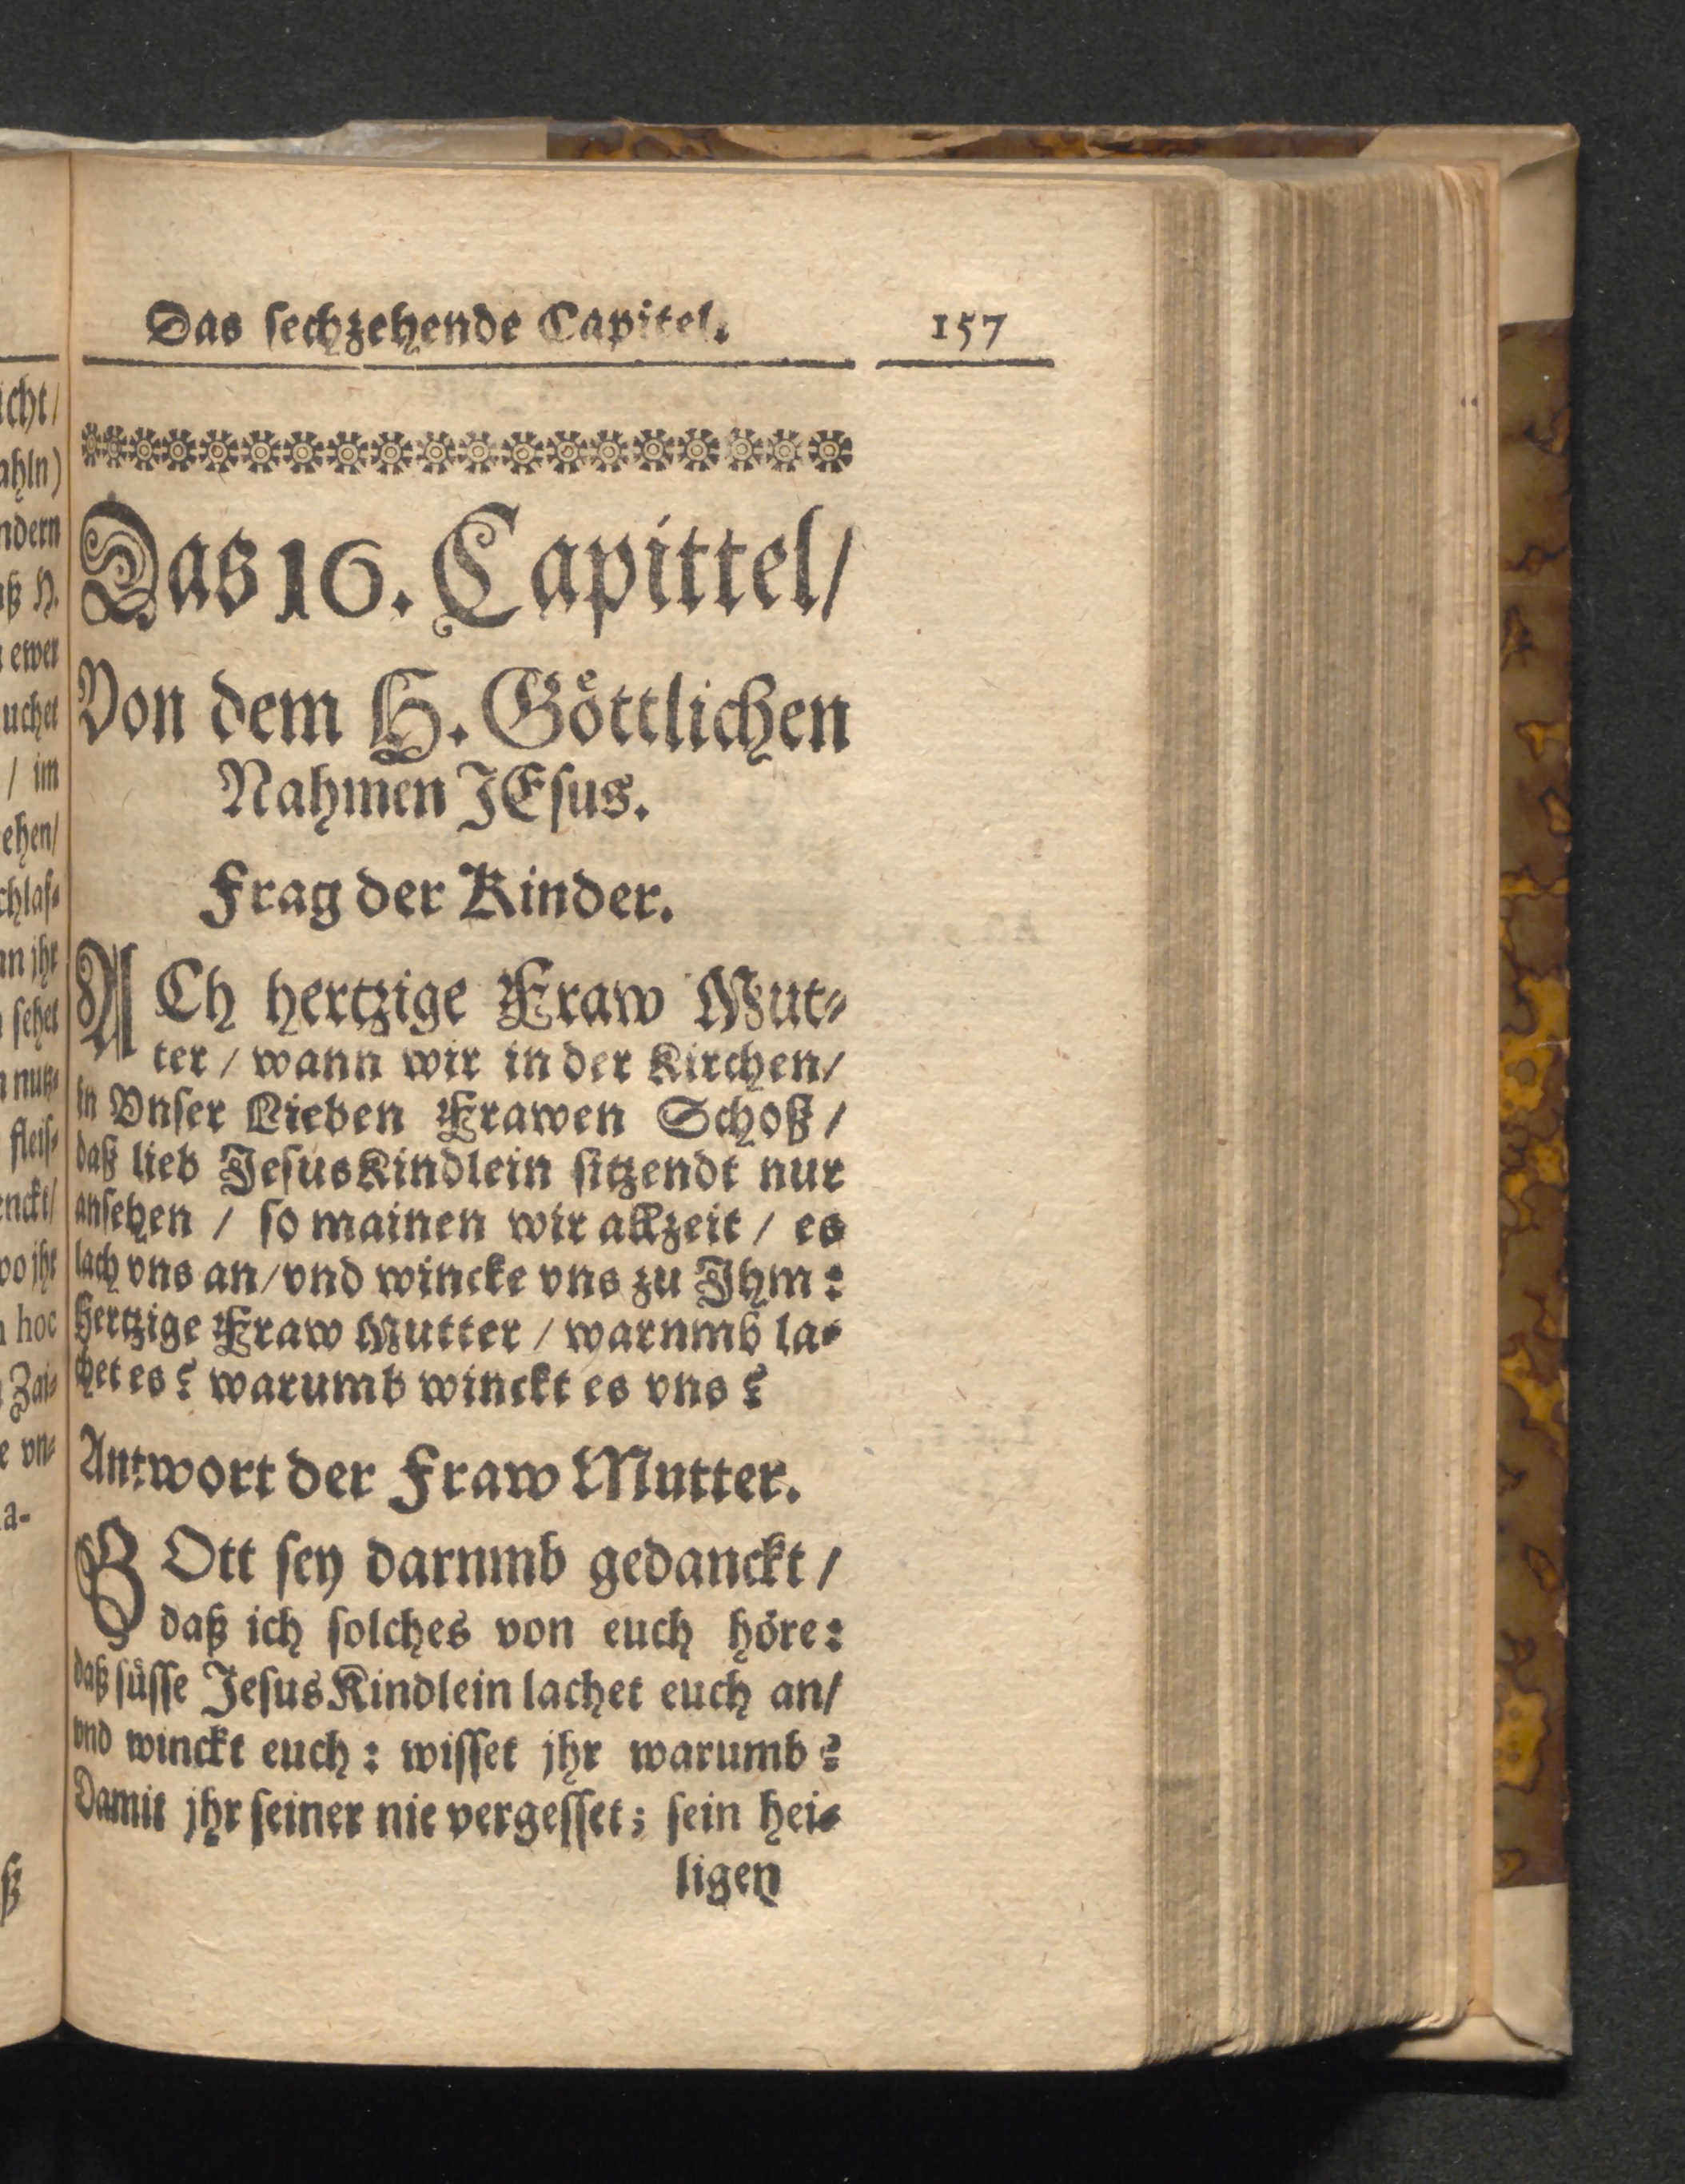 Das sechzehende Capitel. 157
Das 16. Capittel/
Von dem H. Göttlichen
Nahmen JEsus.
Frag der Kinder.
ACh hertzige Fraw Mut-
ter / wann wir in der Kirchen/
in Vnser Lieben Frawen Schoß /
daß lieb JesusKindlein sitzendt nur
ansehen / so mainen wir allzeit / es
lach vns an/vnd wincke vns zu Jhm:
Hertzige Fraw Mutter / warnmb la-
chet es? warumb winckt es vns?
Antwort der Fraw Mutter.
GOtt sey darnmb gedanckt /
daß ich solches von euch höre:
daß süsse JesusKindlein lachet euch an/
vnd winckt euch: wisset jhr warumb?
Damit jhr seiner nie vergesset; sein hei-
ligen